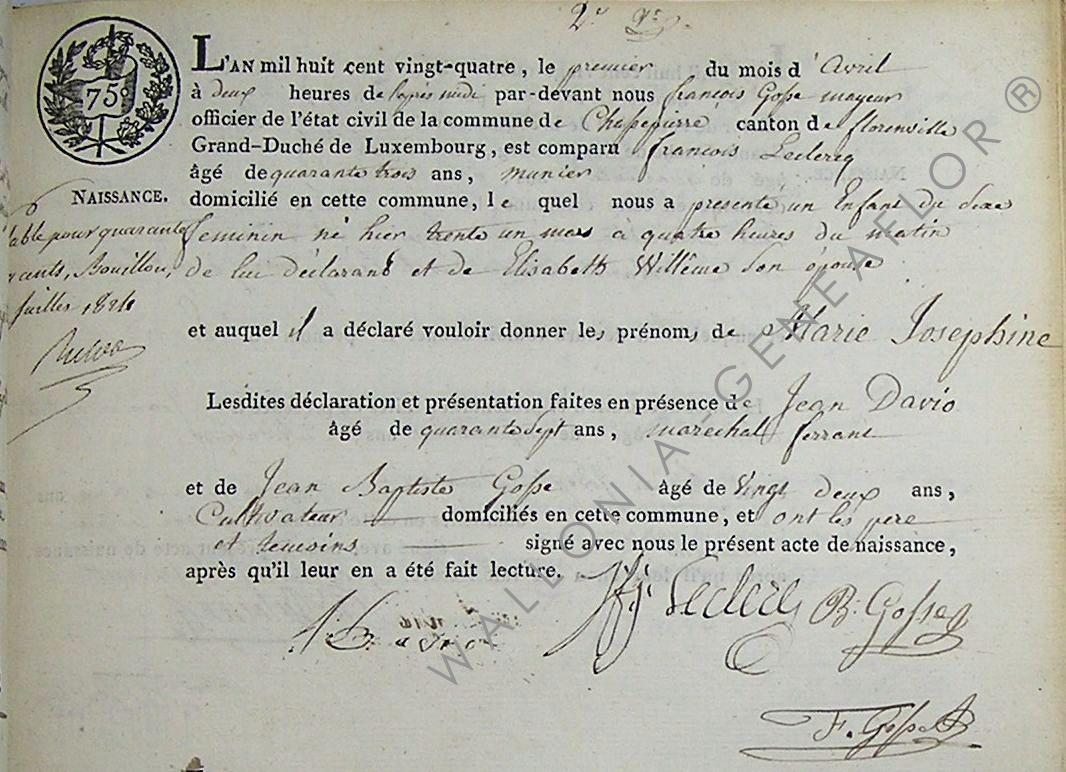 2e
75c
L'AN mil huit cent vingt-quatre, le premier du mois d'Avril
à deux heures de l'après midi par-devant nous françois Gosse mayeur
officier de l'état civil de la commune de Chassepierre canton de florenville
Grand-Duché de Luxembourg, est comparu françois Leclercq
âgé de quarante trois ans, munier
NAISSANCE.
domicilié en cette commune, le quel nous a présenté un Enfant du sexe
feminin né hier trente un mars à quatre heures du matin
de lui déclarant et de Elisabeth Willême son epouse
et auquel il a déclaré vouloir donner les prénoms de Marie Josephine
Lesdites déclaration et présentation faites en présence de Jean Davio
âgé de quarante sept ans, marechal ferrant
et de Jean Baptiste Gosse âgé de Vingt deux ans,
Cultivateur domiciliés en cette commune, et ont les pere
et temoins signé avec nous le présent acte de naissance,
après qu'il leur en a été fait lecture.
table pour quarante
Bouillon,
juillet 1824
Leclercq B: Gosse
F. Gosse
WALLONIA GENEAFLOR ®